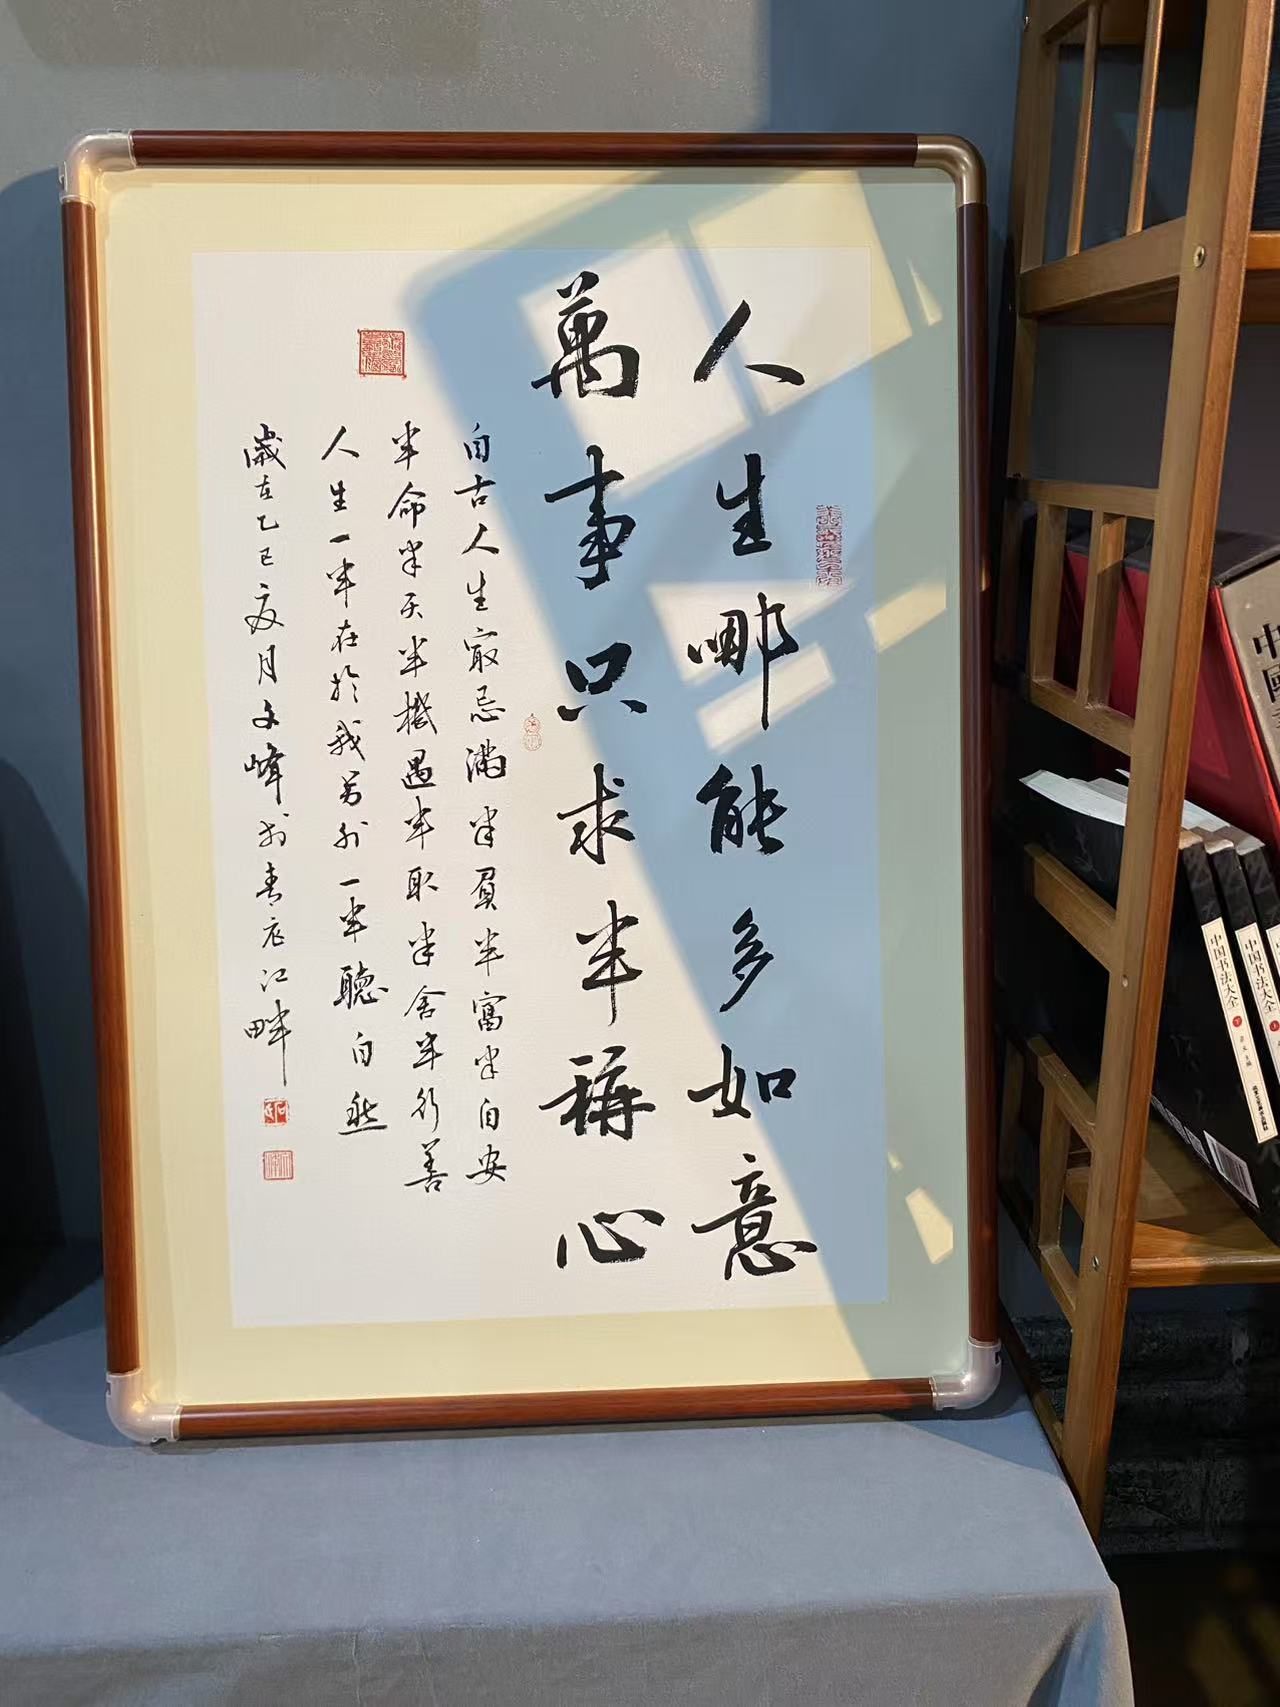 人生哪能多如意
萬事只求半稱心
自古人生㝡忌滿半貧半富半自安
半命半天半機遇半取半舍半行善
人生一半在於我另外一半聽自然
歲在乙巳夏月文峰於青衣江畔
中國
中国书法大全
中国书法大全